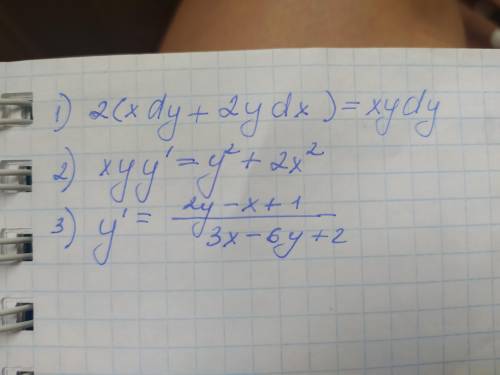 1) 2(x dy + 2y dx) = xy dy
2) xyy' = y² + 2x²
3) y' = \frac{2y - x + 1}{3x - 6y + 2}